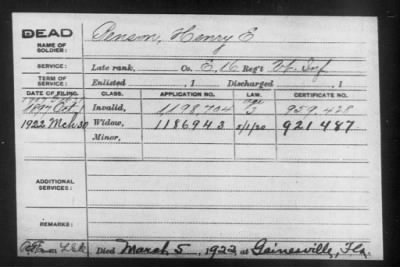 DEAD
NAME OF SOLDIER: Penson, Henry E
SERVICE: Late rank, Co. E, 16 Reg't Vt. Inf
TERM OF SERVICE: Enlisted , 1 Discharged , 1
DATE OF FILING. CLASS. APPLICATION NO. LAW. CERTIFICATE NO.
1897 Oct 1 Invalid, 1198,704 959,428
1922 Mch 30 Widow, 1186943 5/1/20 921487
Minor,
ADDITIONAL SERVICES:
REMARKS:
Died March 5, 1922 at Gainesville, Fla.